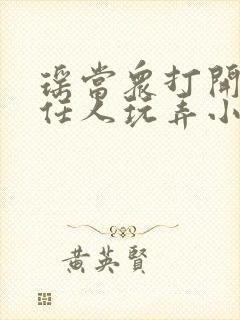 瑶當眾打開
任人玩弄小
黃英賢